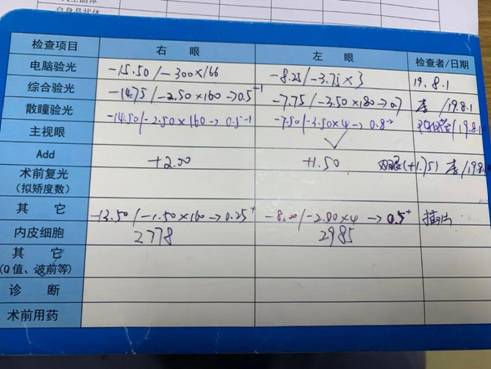 自身抗体
检查项目 右 眼 左 眼 检查者/日期
电脑验光 -15.50/-3.00×166 -8.25/-3.75×3 19.8.1
综合验光 -14.75/-2.50×160→0.5⁻¹ -7.75/-3.50×180→0.7 /19.8.1
散瞳验光 -14.50/-2.50×160→0.5⁻¹ -7.50/-3.50×4→0.8 /19.8.1
主视眼 ✓
Add +2.00 +1.50 (+1.75) /19.8
术前复光
(拟矫度数)
其 它 -13.50/-1.50×160→0.25⁺ -8.00/-2.00×4→0.5⁺ 插片
内皮细胞 2778 2985
其 它
(Q值、波前等)
诊 断
术前用药